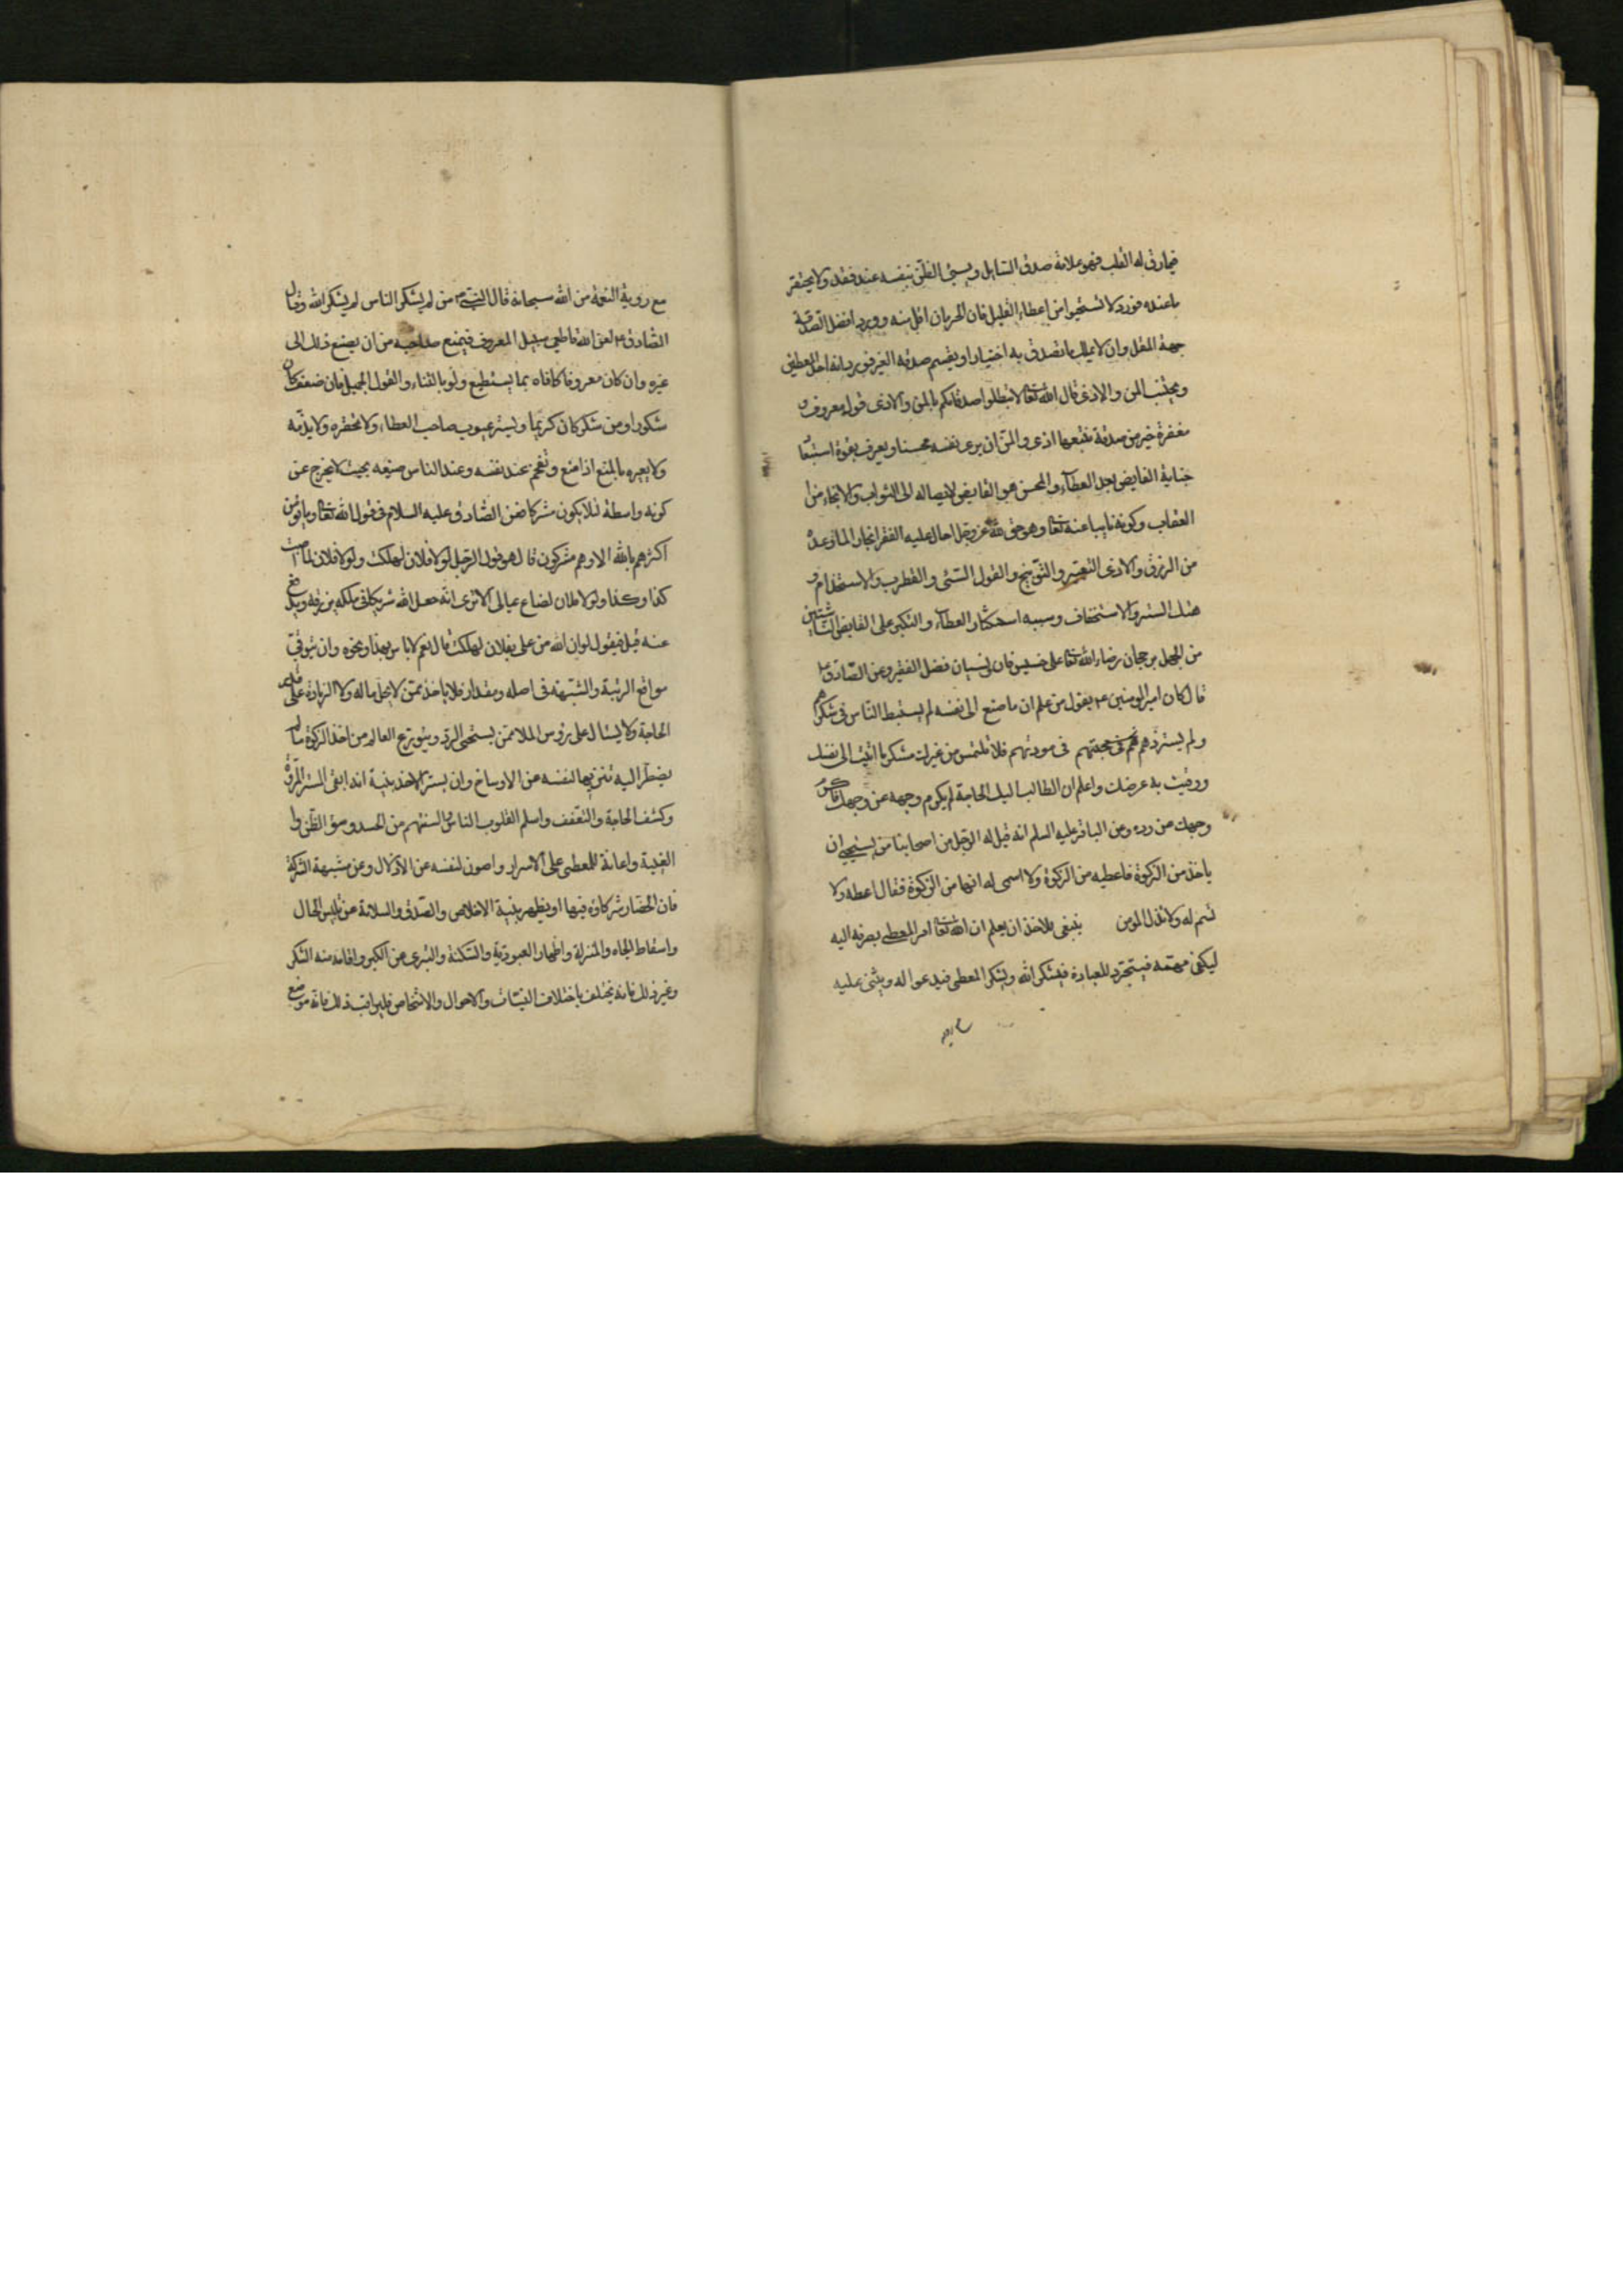 فمارق له القلب فهو علامة صدق السايل ويسيئ الظن بنفسه عند فقده ولا يحتقر
ما عنده فورد لا تستحيوا من اعطاء القليل فان الحرمان اقل منه وورد افضل الصدقة
جهد المقل وان لا يملك ما تصدق به اختيارا ويقسم صدقة الغير فورد انه احد المعطين
ويجتنب المن والاذى قال الله تعا لا تبطلوا صدقاتكم بالمن والاذى قول معروف و
مغفرة خير من صدقة يتبعها اذى والمن ان يرى نفسه محسنا ويعرف بقوة استبعا
جناية القابض بعد العطاء والمحسن هو القابض لايصاله الى الثواب والانجاء من
العقاب وكونه نايبا عنه تعا وهو حق لله عز وجل احال عليه الفقر انجازا لما وعده
من الرزق والاذى التعيير والتوبيخ والقول السيئ والقطوب والاستخدام و
هتك الستر والاستخفاف وسببه استكثار العطاء والتكبر على القابض الناشئين
من الجهل برجحان رضاء الله تعا على خسيس فان ونسيان فضل الفقير وعن الصادق ع
قال كان امير المومنين ع يقول من علم ان ما صنع الى نفسه لم يستبط الناس في شكرهم
ولم يستزدهم في مودتهم فلا تلتمس من غيرك شكر ما اتيت الى نفسك
ووقيت به عرضك واعلم ان الطالب اليك الحاجة لم يكرم وجهه عن وجهك فاكرم
وجهك عن رده وعن الباقر عليه السلم انه قيل له الرجل من اصحابنا من يستحيي ان
ياخذ من الزكوة فاعطيه من الزكوة ولا اسمي له انها من الزكوة فقال اعطه ولا
تسم له ولا تذل المومن ينبغي للاخذ ان يعلم ان الله تعا امر المعطي بصرفه اليه
ليكفي مهمه فيتجرد للعبادة فيشكر الله ويشكر المعطي فيدعو له ويثني عليه
مع روية النعمة من الله سبحانه قال النبي ص من لم يشكر الناس لم يشكر الله وقال
الصادق ع لعن الله قاطعي سبيل المعروف فيمنع صاحبه من ان يصنع ذلك الى
غيره وان كان معروفا كافاه بما يستطيع ولو بالثناء والقول الجميل فان ضعف كان
شكورا ومن شكر كان كريما ويستر عيوب صاحب العطاء ولا يحقره ولا يذمه
ولا يعيره بالمنع اذا منع وتفخم عند نفسه وعند الناس صنيعه بحيث لا يخرج عن
كونه واسطة لئلا يكون شركا فعن الصادق عليه السلام في قول الله تعا وما يؤمن
اكثرهم بالله الا وهم مشركون قال هو قول الرجل لولا فلان لهلكت ولولا فلان لما اصبت
كذا وكذا ولولا فلان لضاع عيالي الا ترى انه جعل الله شريكا في ملكه يرزقه ويدفع
عنه قيل فيقول لولا ان الله من على بفلان لهلكت قال نعم لا باس بهذا ونحوه وان يتوقي
مواقع الريبة والشبهة في اصله ومقداره فلا ياخذ ممن لا يحل ماله ولا الزيادة على قدر
الحاجة ولا يسئال على رؤس الملا ممن يستحي الرد ويتورع العالم من اخذ الزكوة ما لم
يضطر اليه تنزيها لنفسه عن الاوساخ وان يستر الاخذ بنية انه ابقى لستر المروة
وكشف الحاجة والتعفف واسلم لقلوب الناس والسنتهم من الحسد وسوء الظن وا
الغيبة واعانة للمعطي على الاسرار واصون لنفسه عن الاذلال وعن شبهة الشركة
فان الحضار شركاؤه فيها او يظهر بنية الاخلاص والصدق والسلامة عن تلبيس الحال
واسقاط الجاه والمنزلة واظهار العبودية والمسكنة والتبري عن الكبر واقامة سنة الشكر
وغير ذلك فانه يختلف باختلاف النيات والاحوال والاشخاص فليراقب ذلك فانه موضع